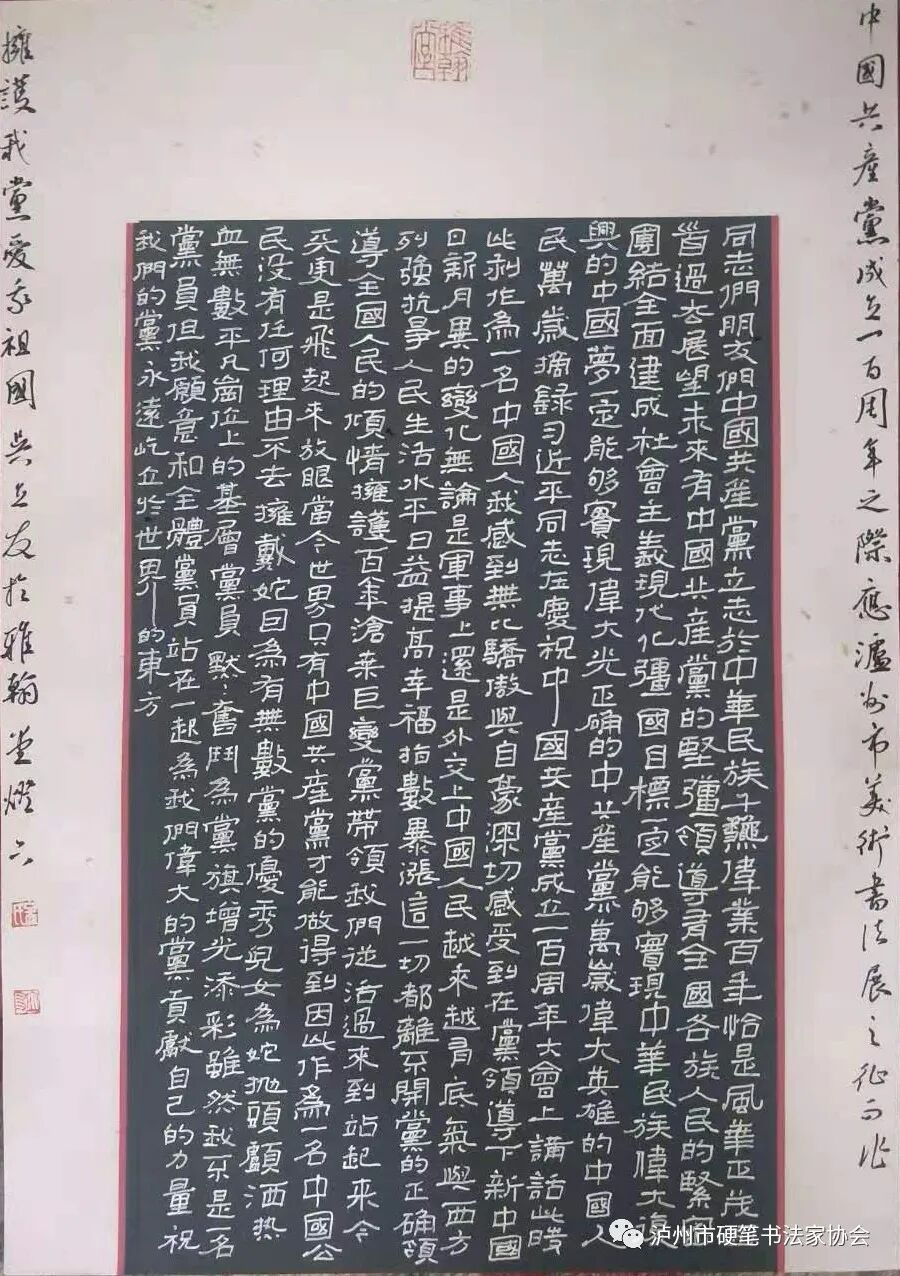 中國共產黨成立一百周年之際應瀘州市美術書法展之征而作
同志們朋友們中國共產黨立志於中華民族千龝偉業百年恰是風華正茂回
首過去展望未來有中國共產黨的堅彊領導有全國各族人民的緊密
團結全面建成社會主義現代化彊國目標一定能够實現中華民族偉大復
興的中國夢一定能够實現偉大光正确的中共產黨萬歲偉大英雄的中國人
民萬歲摘錄習近平同志在慶祝中國共產黨成立一百周年大會上講話此時
此刻作為一名中國人我感到無比驕傲與自豪深切感受到在黨領導下新中國
日新月異的變化無論是軍事上還是外交上中國人民越來越有底氣與西方
列強抗爭人民生活水平日益提高幸福指數暴漲這一切都離不開黨的正确領
導全國人民的傾情擁護百年滄桒巨變黨帶領我們從活過來到站起來今
天更是飛起來放眼當今世界只有中國共產黨才能做得到因此作為一名中國公
民没有任何理由不去擁戴她因為有無數黨的優秀兒女為她抛頭顱洒热
血無數平凡崗位上的基層黨員默默奮鬥為黨旗增光添彩雖然我不是一名
黨員但我願意和全體黨員站在一起為我們偉大的黨貢獻自己的力量祝
我們的黨永遠屹立於世界的東方
擁護我黨愛我祖國吳立友於雅翰堂燈下
泸州市硬笔书法家协会